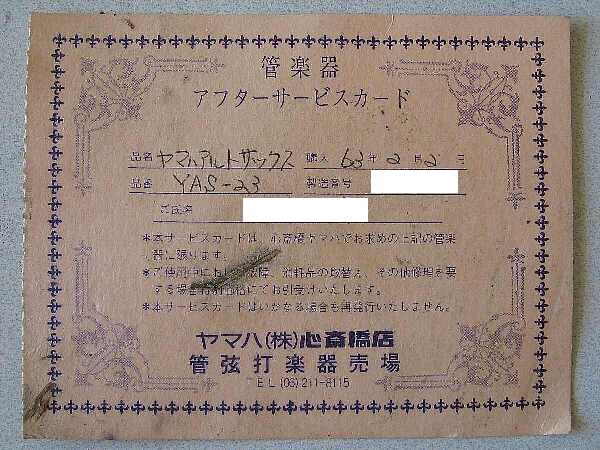 管楽器
アフターサービスカード
品名 ヤマハアルトサックス 購入 63年2月2日
品番 YAS-23 製造番号
ご氏名
*本サービスカードは、心斎橋ヤマハでお求めの上記の管楽
器に限ります。
*ご使用中における故障、消耗品の取替え、その他修理を要
する場合特別価格にてお引受けいたします。
*本サービスカードはいかなる場合も再発行いたしません。
ヤマハ(株)心斎橋店
管弦打楽器売場
TEL(06)211-8115